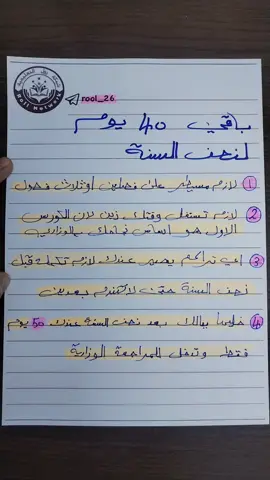 rool_26
باقي 40 يوم
لنصف السنة
1 لازم مسيطر على فصلين او ثلاث فصول
2 لازم تستغل وقتك زين لان الكورس
الاول هو اساس نجاحك بالوزاري
3 اي تراكم يصير عندك لازم تكمله قبل
نصف السنة حتى لا تندم بعدين
4 خليها ببالك بعد نصف السنة عندك 50 يوم
فقط وتدخل للمراجعة الوزارية